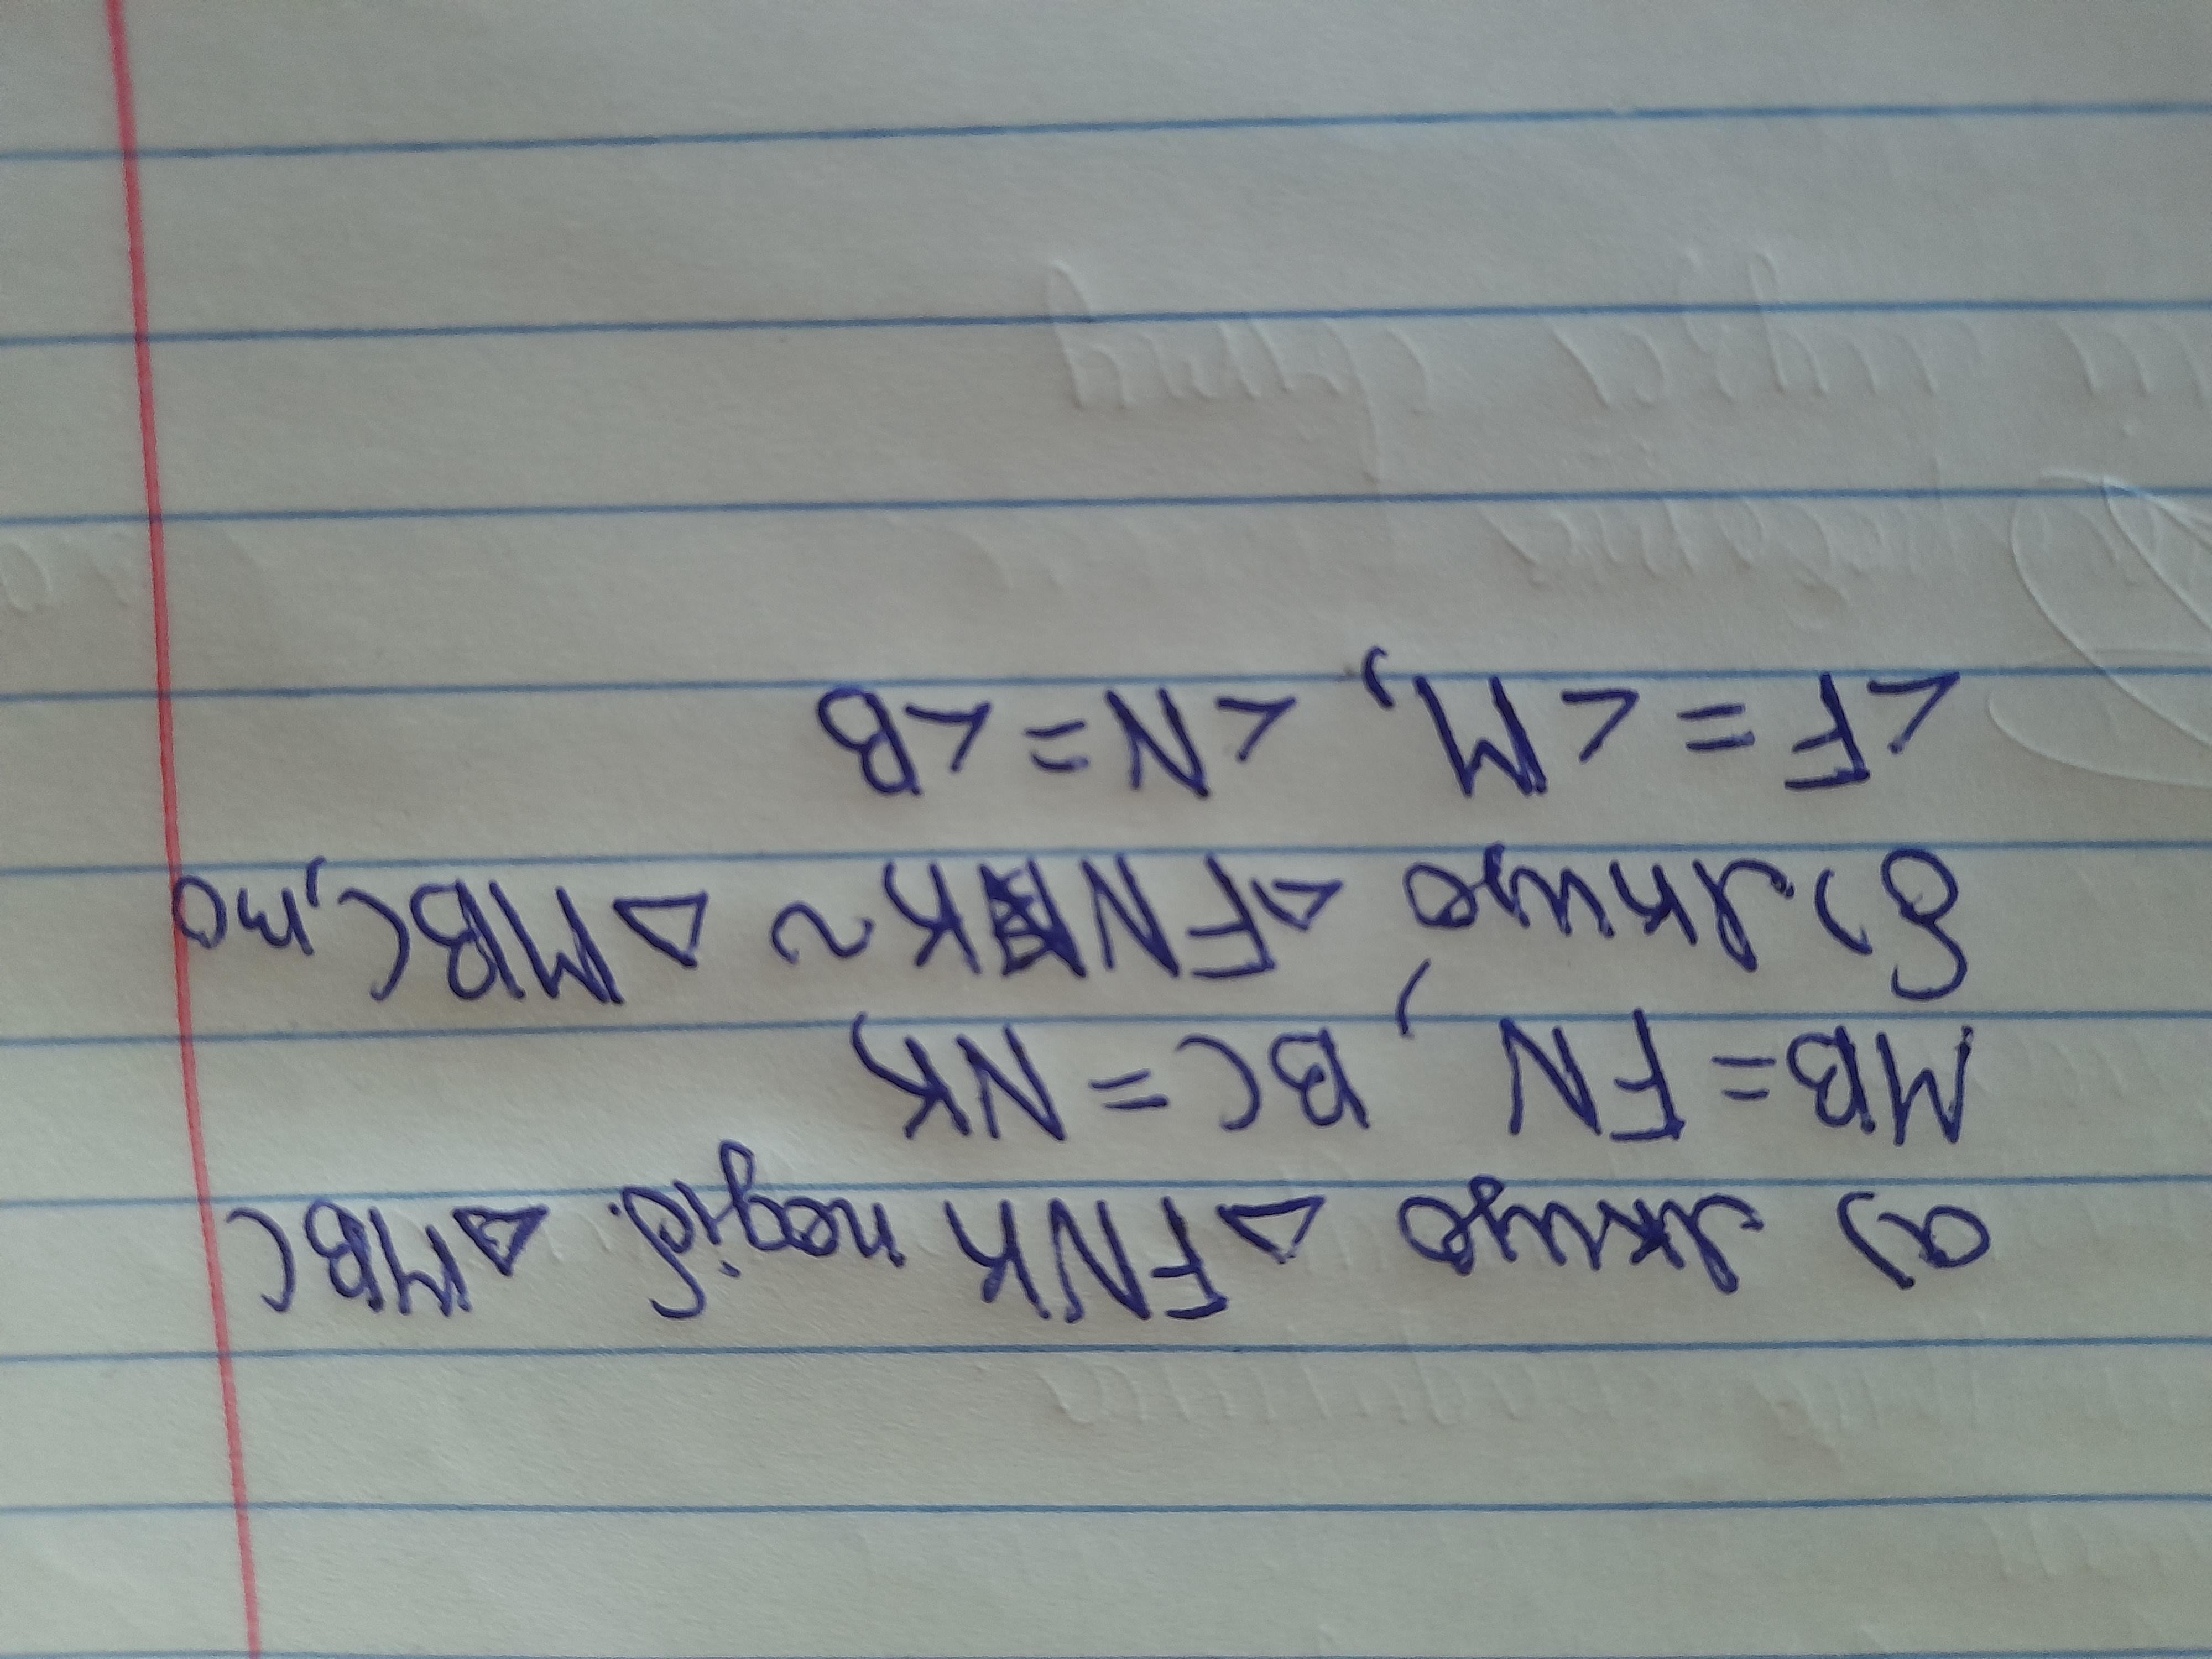 а) Якщо △FNK подіб. △MBC
MB = FN, BC = NK
б) Якщо △FNK ~ △MBC, то
<F = <M, <N = <B